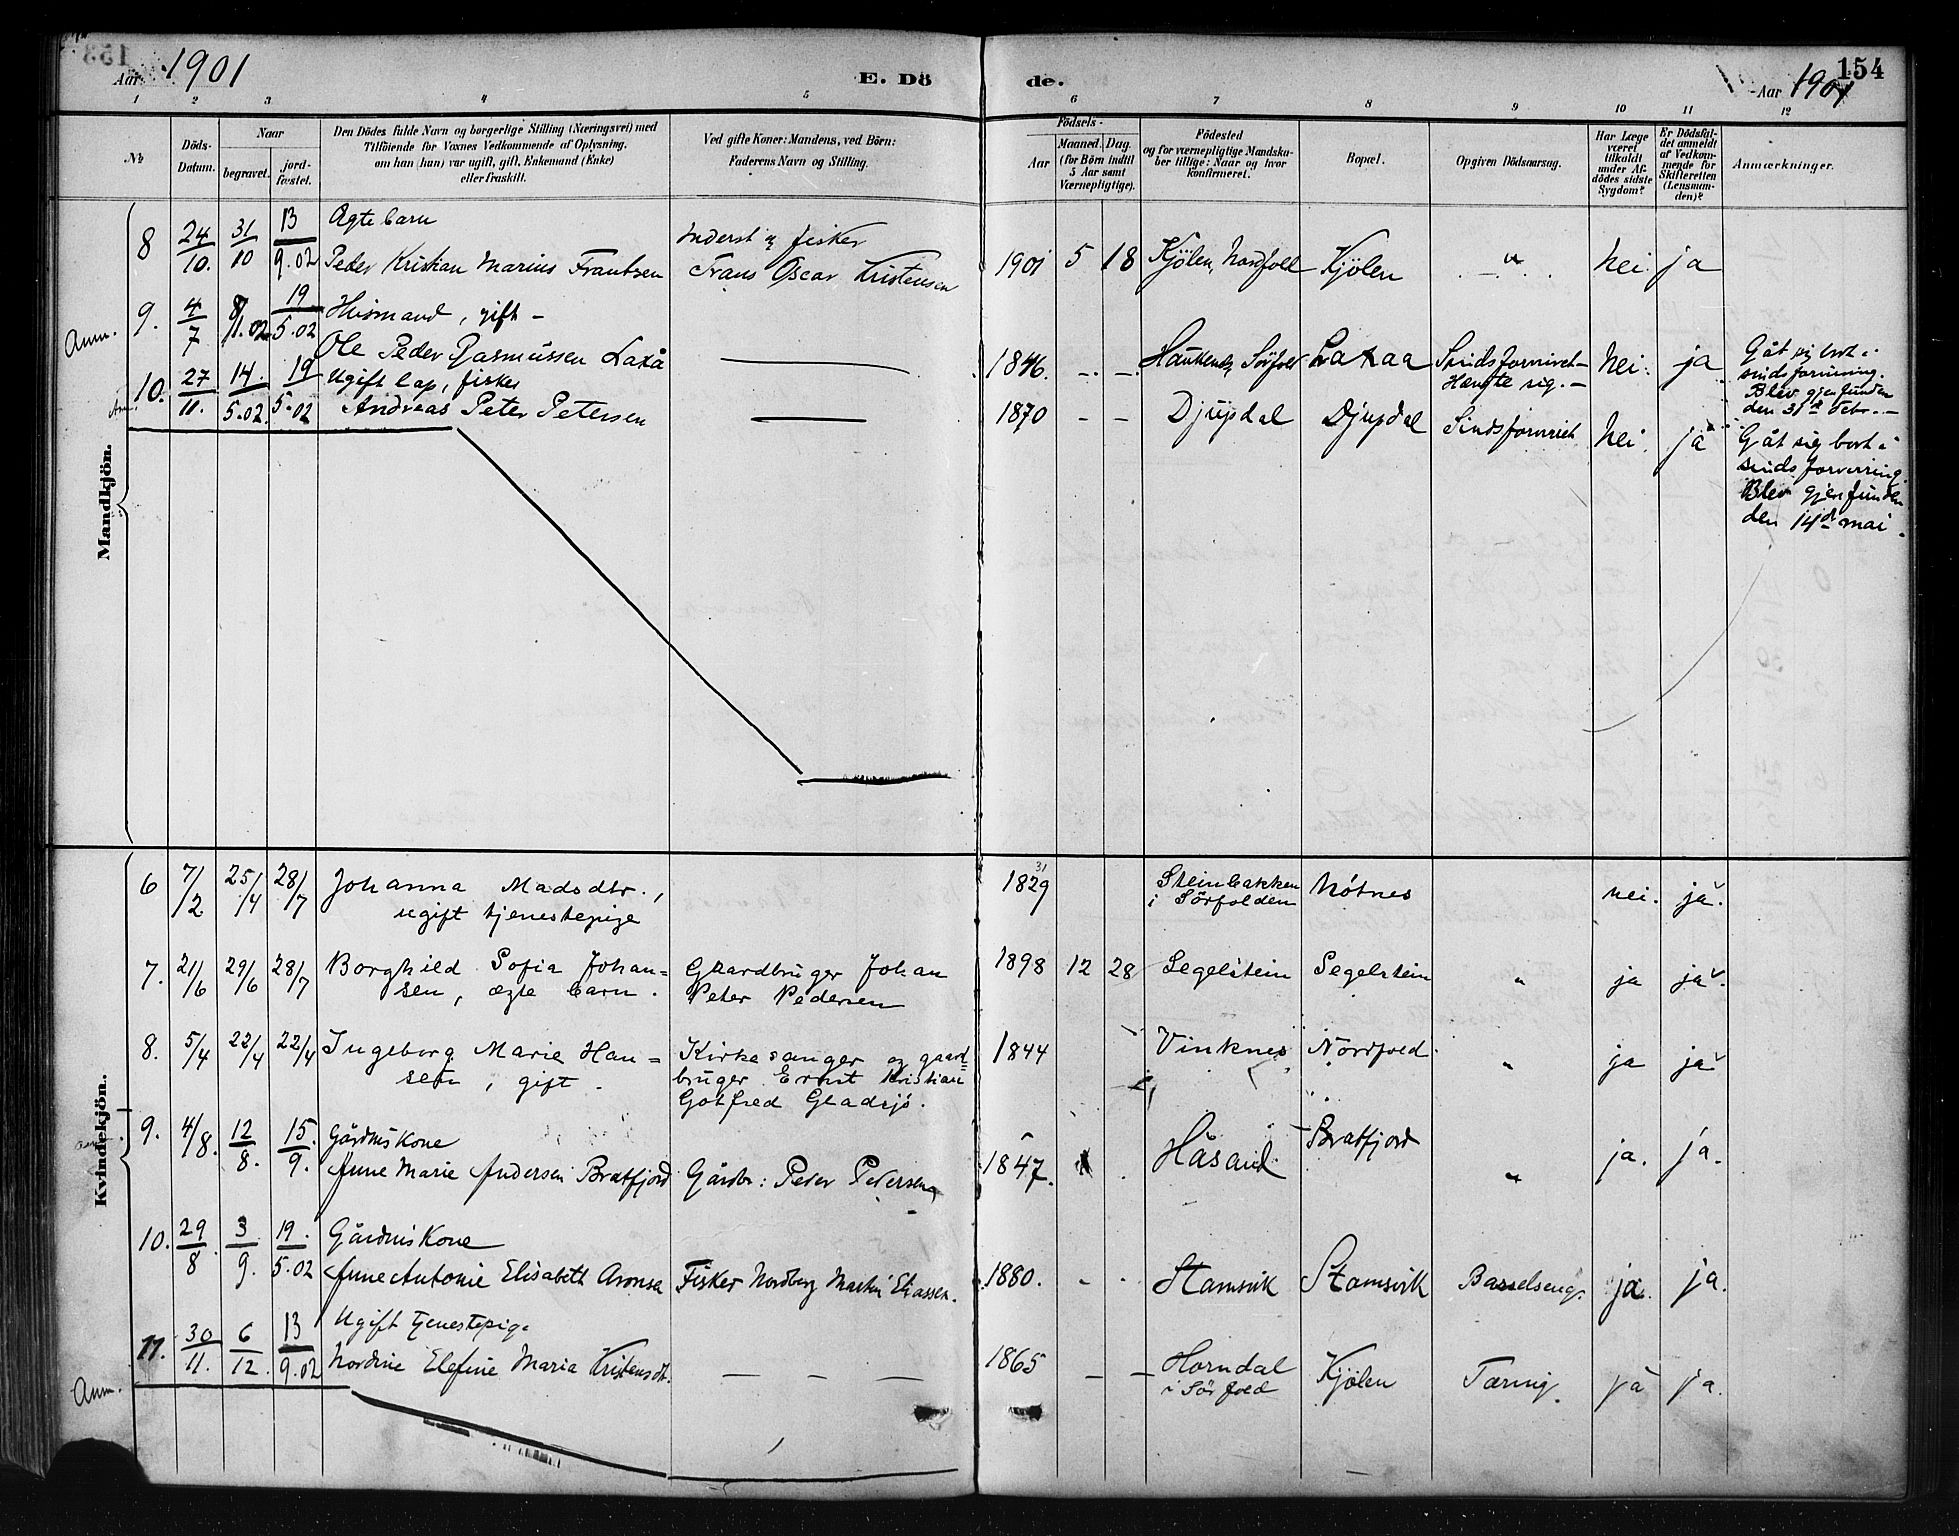 153
Aar 1901
E. Dö
de.
154
Aar 1901
1 2 3 4 5 6 7 8 9 10 11 12
No
Döds-Datum.
Naar
begravet.
jord-fæstet.
Den Dödes fulde Navn og borgerlige Stilling (Næringsvei) med
Tilföiende for Voxnes Vedkommende af Oplysning,
om han (hun) var ugift, gift, Enkemand (Enke)
eller fraskilt.
Ved gifte Koner: Mandens, ved Börn:
Faderens Navn og Stilling.
Födsels-
Aar
Maaned. Dag.
(for Börn indtil
5 Aar samt
Værnepligtige).
Födested
og for værnepligtige Mandska-
ber tillige: Naar og hvor
konfirmeret.
Bopæl.
Opgiven Dödsaarsag.
Har Læge
været
tilkaldt
under Af-
dödes sidste
Sygdom?
Er Dödsfal-
det anmeldt
af Vedkom-
mende for
Skifteretten
(Lensman-
den)?
Anmærkninger.
Mandkjön.
8 24/10. 31/10 13/9.02 Ægte barn
Peder Kristian Marius Frantsen
Inderst og fisker
Frans Oscar Kristensen
1901 5 18 Kjölen, Nordfold Kjölen " nei. ja
Anm.
9. 4/7 8/11.02 19/5.02 Husmand, gift –
Ole Peder Rasmussen Laxå
1846. – – Sörfold Laxaa Sindsforvirret –
Hængte sig. – nei. ja
Gåt sig bort i
sindsforvirring.
Blev gjenfunden
den 31te Febr. –
10. 27/11. 14/5.02 19/5.02 Ugift lap, fisker
Andreas Peter Petersen
1870 – – Djupdal Djupdal Sindsforvirret nei. ja
Gåt sig bort i
sindsforvirring.
Blev gjenfunden
den 14de mai.
Kvindekjön.
6 7/2 25/4 28/7 Johanna Madsdtr.,
ugift tjenestepige
31
1829 Steinbakken
i Sörfolden Nótnes nei. ja.
7. 21/6 29/6 28/7 Borghild Sofia Johan=
sen, ægte barn.
Gaardbruger Johan
Peter Pedersen
1898 12 28 Segelstein Segelstein " ja ja.
8. 5/4 22/4 22/4 Ingeborg Marie Han=
sen, gift.
Kirkesanger og gaard=
bruger Ernst Kristian
Gotfred Gladsjö.
1844 Vinknes Nordfold. " ja ja
9. 4/8. 12/8. 15./9. Gårdmskone
Anne Marie Andersen Bratfjord
Gårdbr: Peder Pedersen
1847. Håsand Bratfjord " ja. ja.
10. 29/8 3/9. 19./5.02 Gårdmskone
Anne Antonie Elisabeth Aronsen
Fisker Nordberg Martin Eliassen.
1880. – – Stamsvik Stamsvik Barselseng. ja. ja.
Anm.
11. 30/11. 6/12. 13/9.02 Ugift Tjenestepige
Nordine Elefine Maria Kristensdt.
– – –
1865 – – Horndal
i Sörfold Kjölen Tæring. ja ja.